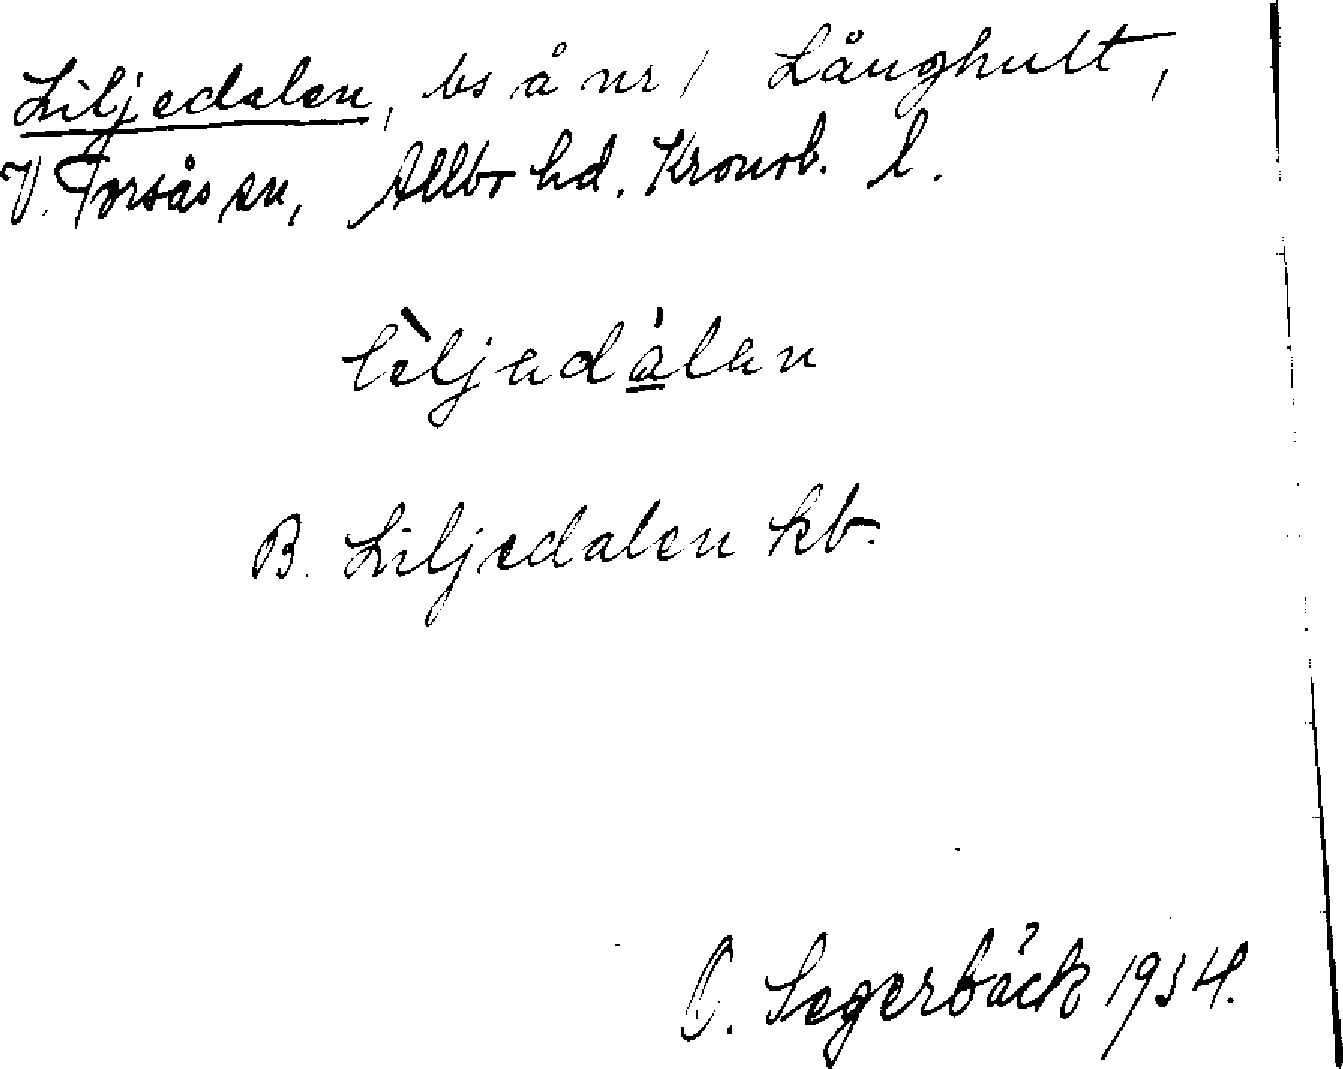 Liljedalen, bs å nr 1 Långhult,
V. Torsås sn, Allbo hd. Kronob. l.
lìljedálen
B. Liljedalen kb.
O. Segerbäck 1934.